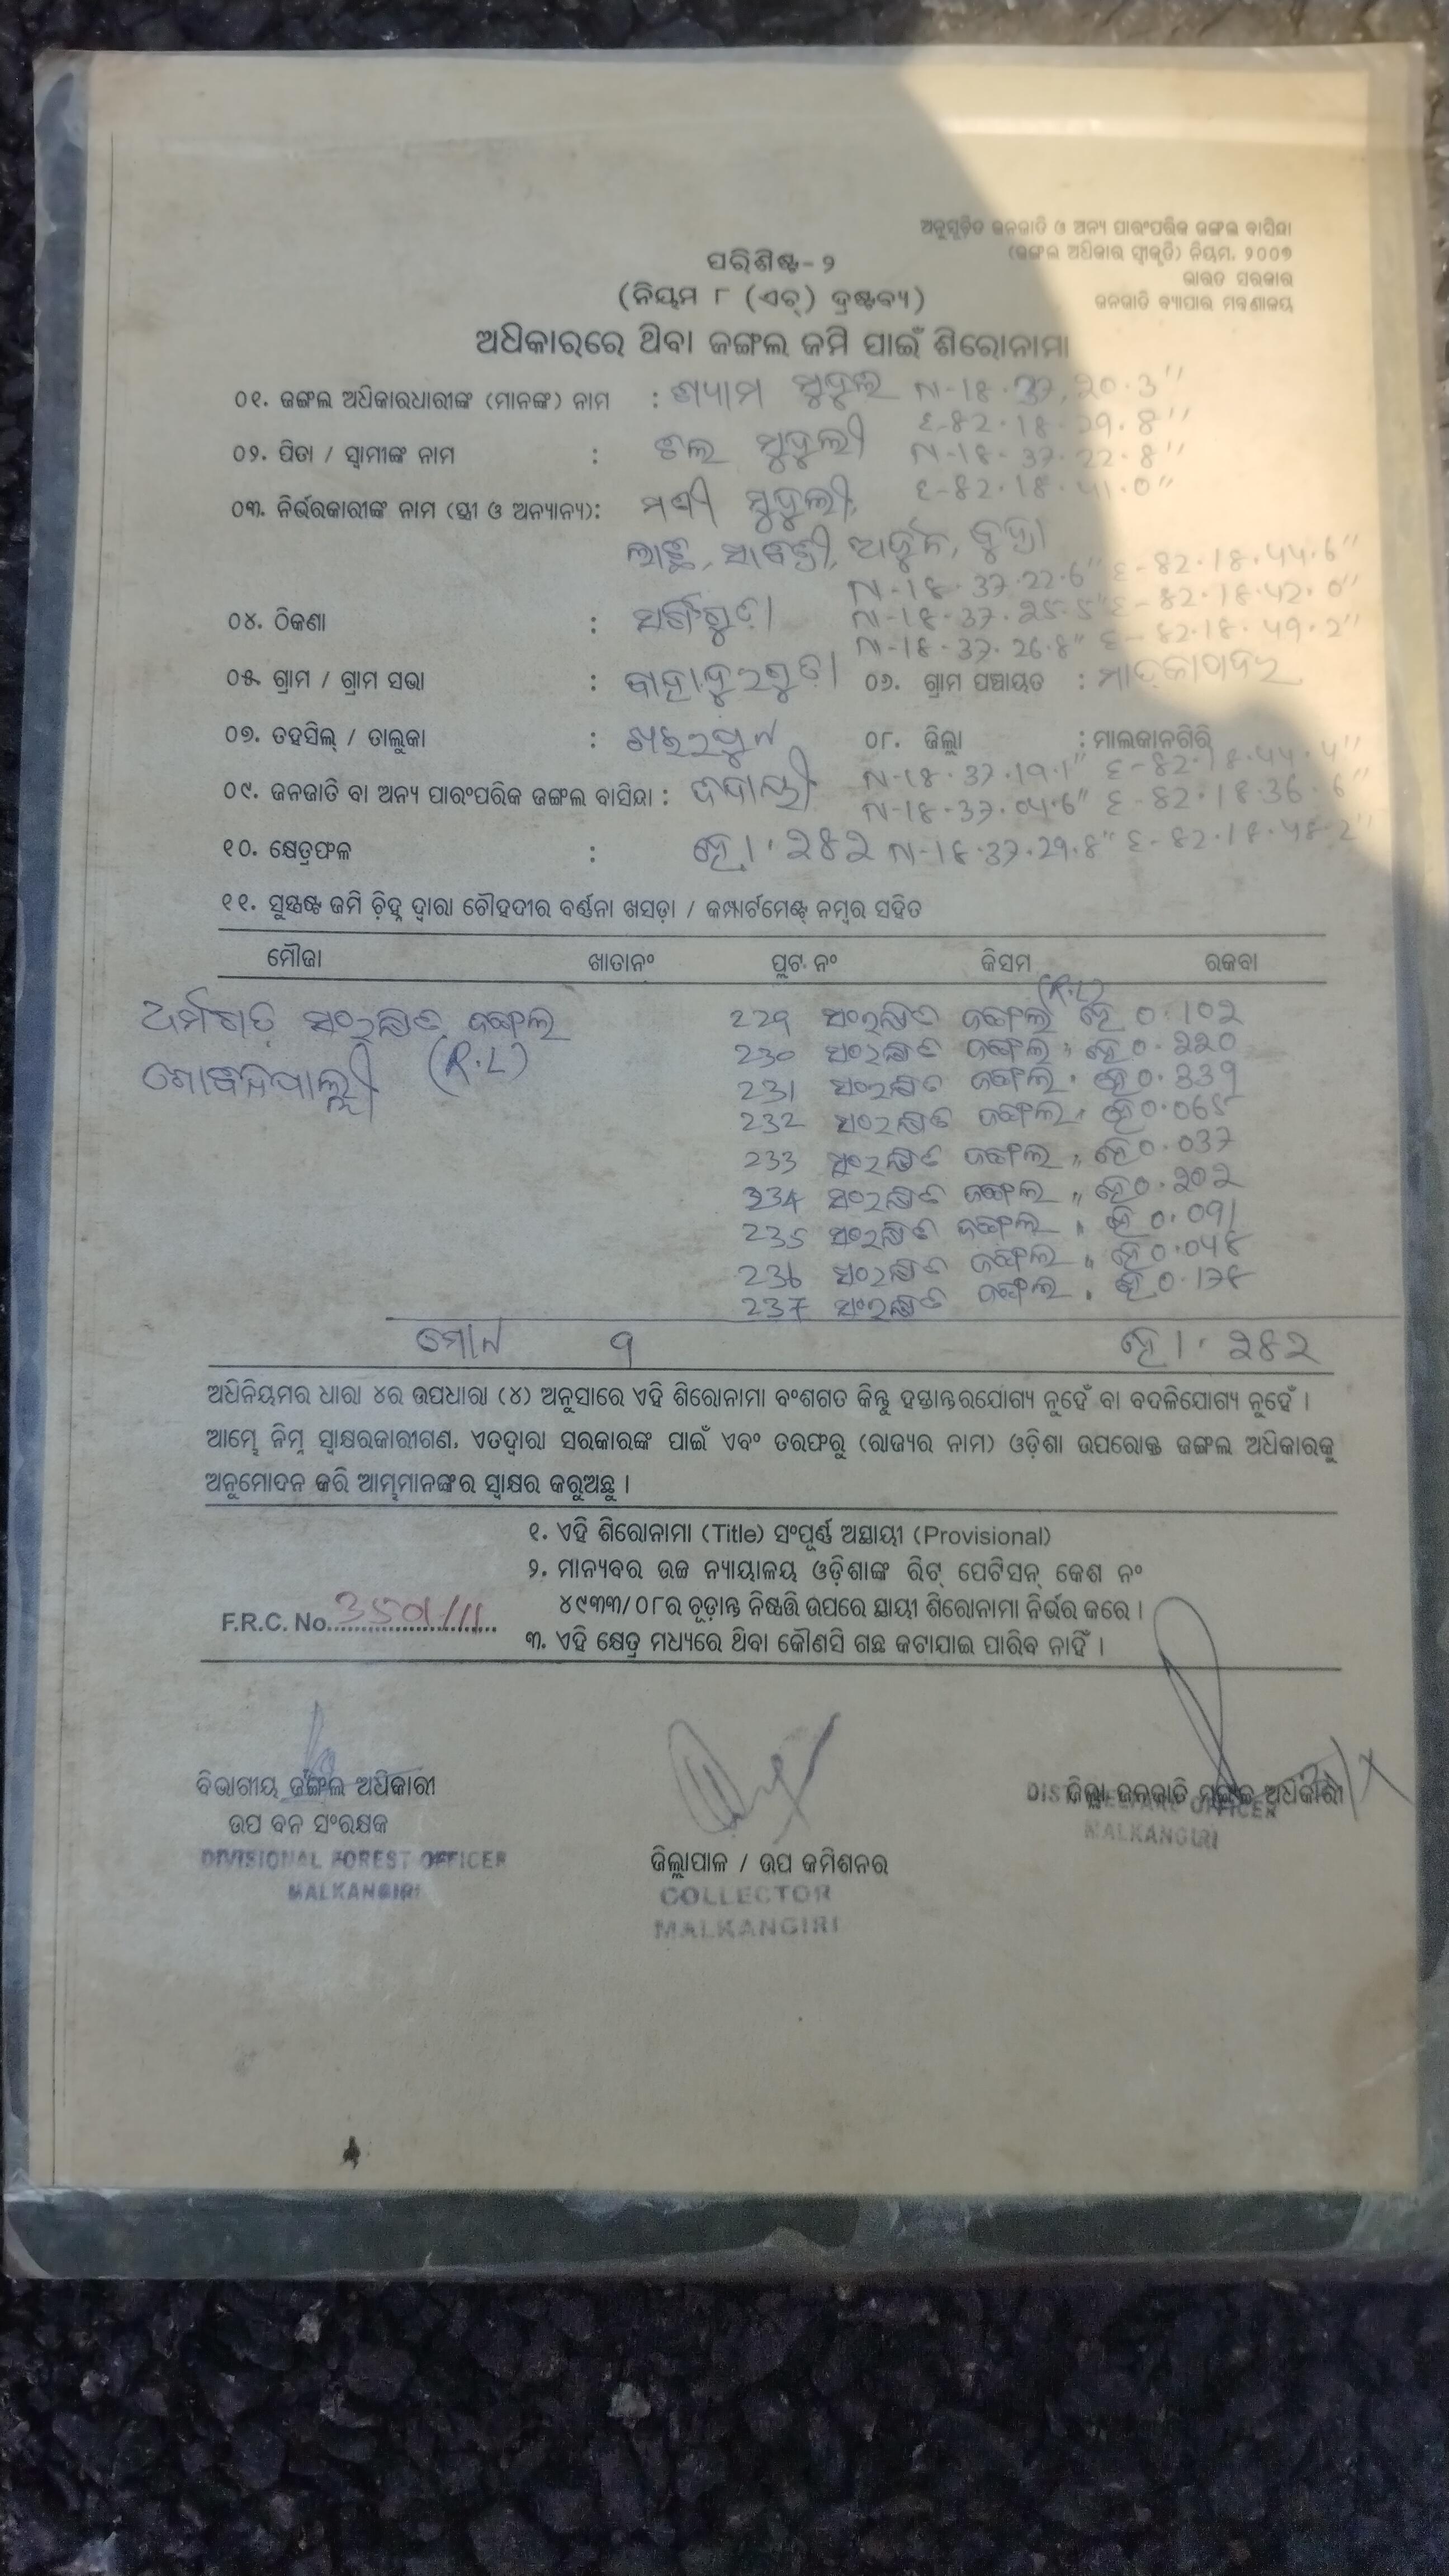 ଅନୁସୂଚିତ ଜନଜାତି ଓ ଅନ୍ୟ ପାରଂପରିକ ଜଙ୍ଗଲ ବାସିନ୍ଦା
(ଜଙ୍ଗଲ ଅଧିକାର ସ୍ୱୀକୃତି) ନିୟମ, ୨୦୦୭
ଭାରତ ସରକାର
ଜନଜାତି ବ୍ୟାପାର ମନ୍ତ୍ରଣାଳୟ
ପରିଶିଷ୍ଟ-୨
(ନିୟମ ୮ (ଏଚ୍) ଦ୍ରଷ୍ଟବ୍ୟ)
ଅଧିକାରରେ ଥିବା ଜଙ୍ଗଲ ଜମି ପାଇଁ ଶିରୋନାମା
୦୧. ଜଙ୍ଗଲ ଅଧିକାରଧାରୀଙ୍କ (ମାନଙ୍କ) ନାମ : ଶ୍ୟାମ ମୁଦୁଲି N-18.37.20.3"
E-82.18.29.8"
୦୨. ପିତା / ସ୍ୱାମୀଙ୍କ ନାମ : ମୁଦୁଲୀ N-18.37.22.8"
E-82.18.41.0"
୦୩. ନିର୍ଭରକାରୀଙ୍କ ନାମ (ସ୍ତ୍ରୀ ଓ ଅନ୍ୟାନ୍ୟ): ମଣୀ ମୁଦୁଲୀ,
ଅର୍ଜୁନ,
N-18.37.22.6" E-82.18.44.6"
N-18.37.25.5" E-82.18.42.0"
୦୪. ଠିକଣା :
N-18.37.26.8" E-82.18.49.2"
୦୫. ଗ୍ରାମ / ଗ୍ରାମ ସଭା : ୦୬. ଗ୍ରାମ ପଞ୍ଚାୟତ :
୦୭. ତହସିଲ୍ / ତାଲୁକା : ଖଇରପୁଟ ୦୮. ଜିଲ୍ଲା : ମାଲକାନଗିରି
N-18.37.19.1" E-82.18.44.4"
୦୯. ଜନଜାତି ବା ଅନ୍ୟ ପାରଂପରିକ ଜଙ୍ଗଲ ବାସିନ୍ଦା : N-18.37.04.6" E-82.18.36.6"
୧୦. କ୍ଷେତ୍ରଫଳ : ହେ 1.282 N-18.37.29.8" E-82.18.48.2"
୧୧. ସୁସ୍ପଷ୍ଟ ଜମି ଚିହ୍ନ ଦ୍ୱାରା ଚୌହଦୀର ବର୍ଣ୍ଣନା ଖସଡ଼ା / କମ୍ପାର୍ଟମେଣ୍ଟ ନମ୍ବର ସହିତ
ମୌଜା ଖାତାନଂ ପ୍ଲଟ ନଂ କିସମ ରକବା
ସଂରକ୍ଷିତ ଜଙ୍ଗଲ 229 ସଂରକ୍ଷିତ ଜଙ୍ଗଲ (R.L) ହେ 0.102
(R.L) 230 ସଂରକ୍ଷିତ ଜଙ୍ଗଲ " ହେ 0.220
231 ସଂରକ୍ଷିତ ଜଙ୍ଗଲ " ହେ 0.339
232 ସଂରକ୍ଷିତ ଜଙ୍ଗଲ " ହେ 0.065
233 ସଂରକ୍ଷିତ ଜଙ୍ଗଲ " ହେ 0.037
234 ସଂରକ୍ଷିତ ଜଙ୍ଗଲ " ହେ 0.202
235 ସଂରକ୍ଷିତ ଜଙ୍ଗଲ " ହେ 0.091
236 ସଂରକ୍ଷିତ ଜଙ୍ଗଲ " ହେ 0.048
237 ସଂରକ୍ଷିତ ଜଙ୍ଗଲ " ହେ 0.178
ମୋଟ 9 ହେ 1.282
ଅଧିନିୟମର ଧାରା ୪ର ଉପଧାରା (୪) ଅନୁସାରେ ଏହି ଶିରୋନାମା ବଂଶଗତ କିନ୍ତୁ ହସ୍ତାନ୍ତରଯୋଗ୍ୟ ନୁହେଁ ବା ବଦଳିଯୋଗ୍ୟ ନୁହେଁ ।
ଆମ୍ଭେ ନିମ୍ନ ସ୍ୱାକ୍ଷରକାରୀଗଣ, ଏତଦ୍ୱାରା ସରକାରଙ୍କ ପାଇଁ ଏବଂ ତରଫରୁ (ରାଜ୍ୟର ନାମ) ଓଡ଼ିଶା ଉପରୋକ୍ତ ଜଙ୍ଗଲ ଅଧିକାରକୁ
ଅନୁମୋଦନ କରି ଆମ୍ଭମାନଙ୍କର ସ୍ୱାକ୍ଷର କରୁଅଛୁ ।
୧. ଏହି ଶିରୋନାମା (Title) ସଂପୂର୍ଣ୍ଣ ଅସ୍ଥାୟୀ (Provisional)
୨. ମାନ୍ୟବର ଉଚ୍ଚ ନ୍ୟାୟାଳୟ ଓଡ଼ିଶାଙ୍କ ରିଟ୍ ପେଟିସନ୍ କେଶ ନଂ
୪୯୩୩/୦୮ର ଚୂଡ଼ାନ୍ତ ନିଷ୍ପତ୍ତି ଉପରେ ସ୍ଥାୟୀ ଶିରୋନାମା ନିର୍ଭର କରେ ।
F.R.C. No. 3501/11
୩. ଏହି କ୍ଷେତ୍ର ମଧ୍ୟରେ ଥିବା କୌଣସି ଗଛ କଟାଯାଇ ପାରିବ ନାହିଁ ।
ବିଭାଗୀୟ ଜଙ୍ଗଲ ଅଧିକାରୀ
ଉପ ବନ ସଂରକ୍ଷକ
DIVISIONAL FOREST OFFICER
MALKANGIRI
ଜିଲ୍ଲାପାଳ / ଉପ କମିଶନର
COLLECTOR
MALKANGIRI
ଜିଲ୍ଲା ଜନଜାତି ମଙ୍ଗଳ ଅଧିକାରୀ
DIST WELFARE OFFICER
MALKANGIRI